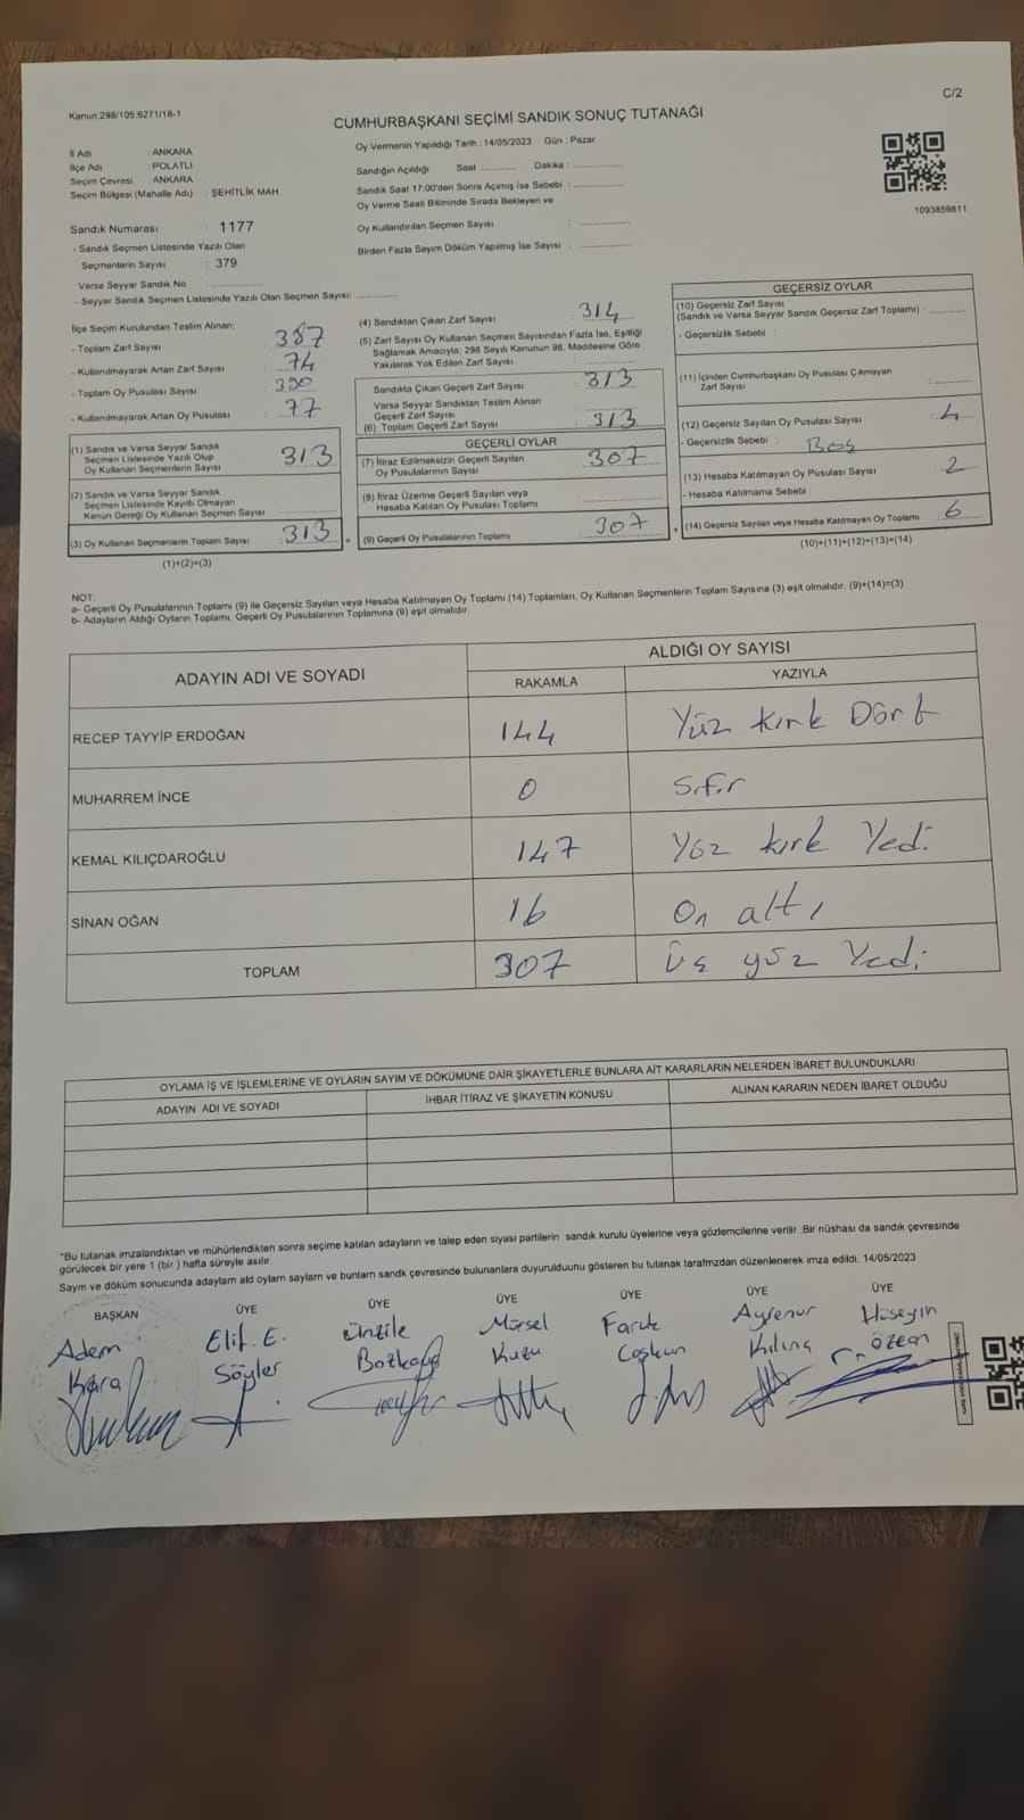 Kanun:298/105:6271/18-1
C/2
CUMHURBAŞKANI SEÇİMİ SANDIK SONUÇ TUTANAĞI
İl Adı : ANKARA
İlçe Adı : POLATLI
Seçim Çevresi : ANKARA
Seçim Bölgesi (Mahalle Adı) ŞEHİTLİK MAH
Sandık Numarası : 1177
- Sandık Seçmen Listesinde Yazılı Olan
Seçmenlerin Sayısı : 379
Varsa Seyyar Sandık No
- Seyyar Sandık Seçmen Listesinde Yazılı Olan Seçmen Sayısı:
Oy Vermenin Yapıldığı Tarih : 14/05/2023 Gün : Pazar
Sandığın Açıldığı Saat Dakika :
Sandık Saat 17:00'den Sonra Açılmış İse Sebebi :
Oy Verme Saati Bitiminde Sırada Bekleyen ve
Oy Kullandırılan Seçmen Sayısı :
Birden Fazla Sayım Döküm Yapılmış İse Sayısı :
1093859811
İlçe Seçim Kurulundan Teslim Alınan;
- Toplam Zarf Sayısı 387
- Kullanılmayarak Artan Zarf Sayısı 74
- Toplam Oy Pusulası Sayısı
- Kullanılmayarak Artan Oy Pusulası 77
(1) Sandık ve Varsa Seyyar Sandık
Seçmen Listesinde Yazılı Olup
Oy Kullanan Seçmenlerin Sayısı 313
(2) Sandık ve Varsa Seyyar Sandık
Seçmen Listesinde Kayıtlı Olmayan
Kanun Gereği Oy Kullanan Seçmen Sayısı
(3) Oy Kullanan Seçmenlerin Toplam Sayısı 313
(1)+(2)=(3)
(4) Sandıktan Çıkan Zarf Sayısı 314
(5) Zarf Sayısı Oy Kullanan Seçmen Sayısından Fazla İse, Eşitliği
Sağlamak Amacıyla; 298 Sayılı Kanunun 98. Maddesine Göre
Yakılarak Yok Edilen Zarf Sayısı
Sandıkta Çıkan Geçerli Zarf Sayısı 313
Varsa Seyyar Sandıktan Teslim Alınan
Geçerli Zarf Sayısı
(6) Toplam Geçerli Zarf Sayısı 313
GEÇERLİ OYLAR
(7) İtiraz Edilmeksizin Geçerli Sayılan
Oy Pusulalarının Sayısı 307
(8) İtiraz Üzerine Geçerli Sayılan veya
Hesaba Katılan Oy Pusulası Toplamı
(9) Geçerli Oy Pusulalarının Toplamı 307
GEÇERSİZ OYLAR
(10) Geçersiz Zarf Sayısı
(Sandık ve Varsa Seyyar Sandık Geçersiz Zarf Toplamı) :
- Geçersizlik Sebebi :
(11) İçinden Cumhurbaşkanı Oy Pusulası Çıkmayan
Zarf Sayısı
(12) Geçersiz Sayılan Oy Pusulası Sayısı 4
- Geçersizlik Sebebi : Boş
(13) Hesaba Katılmayan Oy Pusulası Sayısı 2
- Hesaba Katılmama Sebebi :
(14) Geçersiz Sayılan veya Hesaba Katılmayan Oy Toplamı 6
(10)+(11)+(12)+(13)=(14)
NOT:
a- Geçerli Oy Pusulalarının Toplamı (9) ile Geçersiz Sayılan veya Hesaba Katılmayan Oy Toplamı (14) Toplamları, Oy Kullanan Seçmenlerin Toplam Sayısına (3) eşit olmalıdır. (9)+(14)=(3)
b- Adayların Aldığı Oyların Toplamı, Geçerli Oy Pusulalarının Toplamına (9) eşit olmalıdır.
ADAYIN ADI VE SOYADI
ALDIĞI OY SAYISI
RAKAMLA YAZIYLA
RECEP TAYYİP ERDOĞAN 144 Yüz kırk Dört
MUHARREM İNCE 0 Sıfır
KEMAL KILIÇDAROĞLU 147 Yüz kırk Yedi
SİNAN OĞAN 16 On altı
TOPLAM 307 üç yüz Yedi
OYLAMA İŞ VE İŞLEMLERİNE VE OYLARIN SAYIM VE DÖKÜMÜNE DAİR ŞİKAYETLERLE BUNLARA AİT KARARLARIN NELERDEN İBARET BULUNDUKLARI
ADAYIN ADI VE SOYADI İHBAR İTİRAZ VE ŞİKAYETİN KONUSU ALINAN KARARIN NEDEN İBARET OLDUĞU
*Bu tutanak imzalandıktan ve mühürlendikten sonra seçime katılan adayların ve talep eden siyasi partilerin sandık kurulu üyelerine veya gözlemcilerine verilir. Bir nüshası da sandık çevresinde
görülecek bir yere 1 (bir ) hafta süreyle asılır.
Sayım ve döküm sonucunda adayların ald oyların sayların ve bunların sandk çevresinde bulunanlara duyurulduunu gösteren bu tutanak tarafmzdan düzenlenerek imza edildi. 14/05/2023
BAŞKAN ÜYE ÜYE ÜYE ÜYE ÜYE ÜYE
Adem Elif E. Ünzile Mürsel Faruk Ayşenur Hüseyin
Kara Söyler Bozkaya Kuzu Coşkun Kılınç özcan